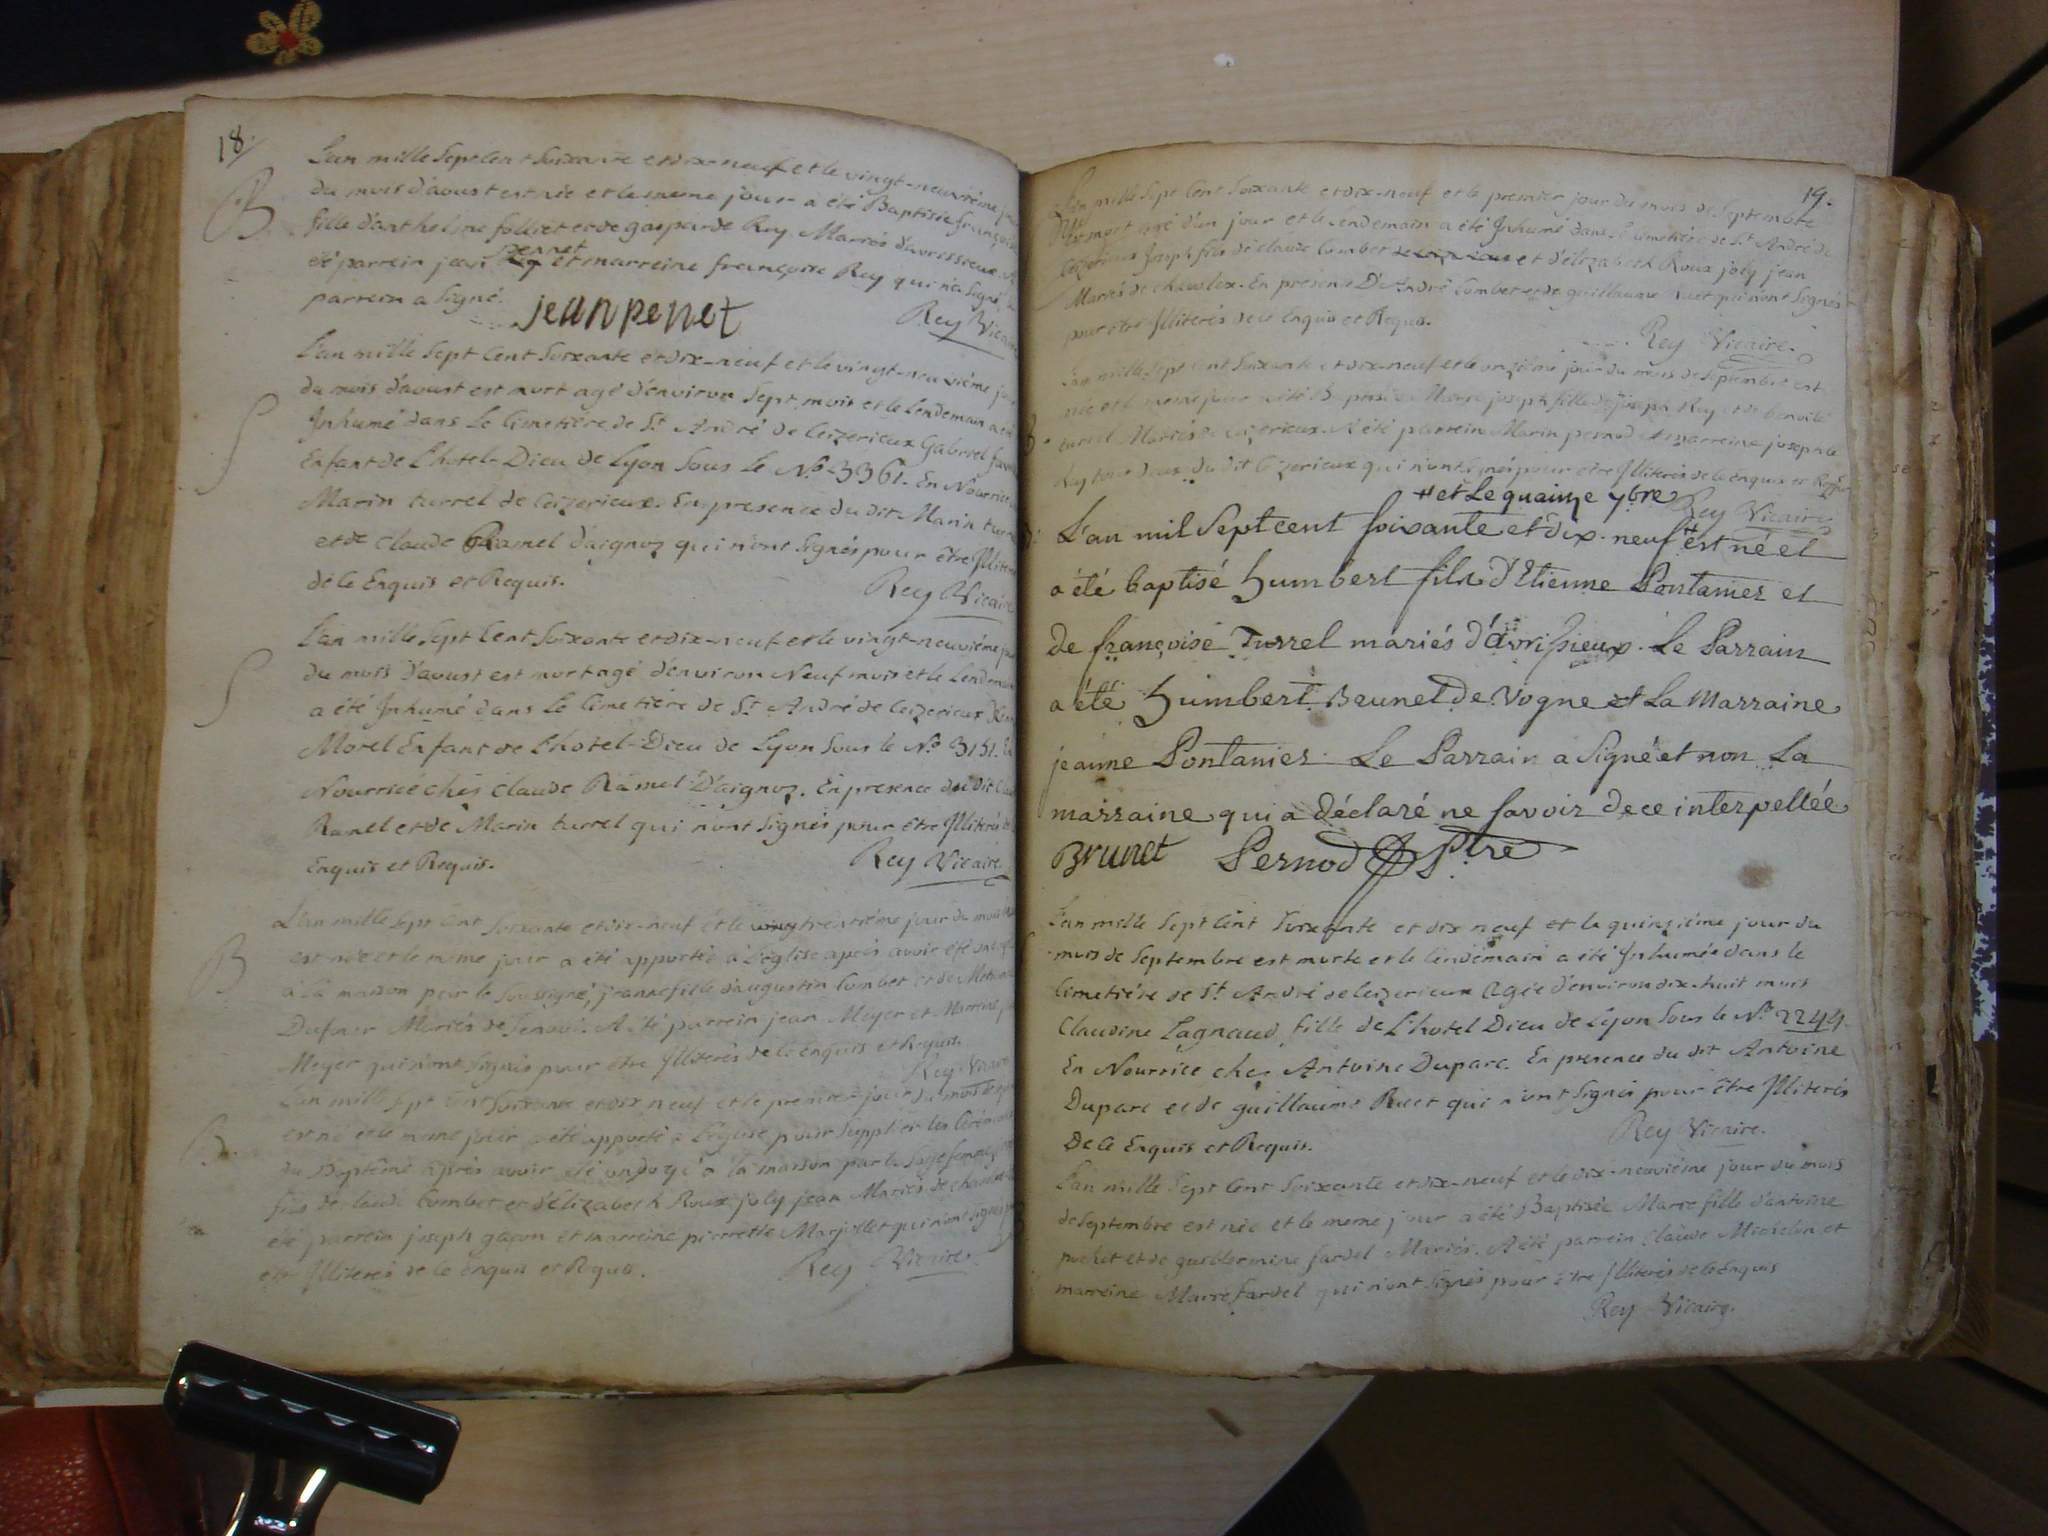 18.
L'an mille Sept Cent Soixante et dix-neuf et le vingt-neuvième
du mois d'aoust est née et le meme jour a été Baptisée françoise
fille d'anthelme folliet et de gasparde Rey Mariés d'avressieux
été parrein jean penet et marreine françoise Rey qui n'a Signé
parrein a Signé.
jean penet
Rey Vicaire
L'an mille Sept Cent Soixante et dix-neuf et le vingt-neuvième
du mois d'aoust est mort agé d'environ Sept mois et le Lendemain a été
Inhumé dans Le Cimetière de St. André de Ceizerieux Gabriel
Enfant de L'hotel-Dieu de Lyon Sous Le No. 3361. En Nourrice
Marin turrel de Ceizerieux. En presence du dit Marin turrel
et de Claude Ramel d'aignoz qui n'ont Signés pour être Illiterés
de le Enquis et Requis.
Rey Vicaire
L'an mille Sept Cent Soixante et dix-neuf et le vingt-neuvième
du mois d'aoust est mort agé d'environ Neuf mois et le Lendemain
a été Inhumé dans Le Cimetière de St. André de Ceizerieux
Morel Enfant de L'hotel-Dieu de Lyon Sous le No. 3151. En
Nourrice chés Claude Ramel D'aignoz. En presence du dit
Ramel et de Marin turrel qui n'ont Signés pour être Illiterés
Enquis et Requis.
Rey Vicaire.
B
L'an mille Sept Cent Soixante et dix-neuf et le trentième jour du mois
est née et le meme jour a été apportée à L'église après avoir été
à la maison par le Soussigné, jeanne fille d'augustin Combet et de
Dufour Mariés de . A été parrein jean Meyer et Marreine
Meyer qui n'ont Signés pour être Illiterés de le Enquis et Requis.
Rey Vicaire
L'an mille Sept Cent Soixante et dix neuf et le premier jour du mois de
est né et le meme jour a été apporté à L'église pour Supplier les Cérémonies
du Baptême après avoir été ondoyé à la maison par la Sage femme
fils de Claude Combet et d'Elizabeth Roux joly jean Mariés de
été parrein joseph gacon et marreine pierrette Marjollet qui n'ont Signés
être Illiterés de le Enquis et Requis.
Rey Vicaire.
19.
L'an mille Sept Cent Soixante et dix-neuf et le premier jour du mois de Septembre
est mort agé d'un jour et le Lendemain a été Inhumé dans le Cimetière de St. André de
Ceizerieux Joseph fils de Claude Combet et d'Elizabeth Roux joly jean
Mariés de . En présence D'André Combet et de guillaume Ruet qui n'ont Signés
pour être Illiterés de le Enquis et Requis.
Rey Vicaire.
L'an mille Sept Cent Soixante et dix-neuf et le onzième jour du mois de Septembre est
née et le meme jour a été Baptisée Marie joseph fille de joseph Rey et de benoite
turrel Mariés de Ceizerieux. A été parrein Marin pernod et marreine josephte
Rey tous deux du dit Ceizerieux qui n'ont Signés pour être Illiterés de le Enquis et Requis
Rey Vicaire
+ et Le quainze 7bre
L'an mil Septcent soixante et dix-neuf + est né et
a été baptisé humbert fils d'Etienne Pontanier et
de françoise Turrel mariés d'avrissieux. Le Parrain
a été humbert Brunet de Vogne et La Marraine
jeanne Pontanier. Le Parrain a Signé et non La
marraine qui a déclaré ne savoir de ce interpellée.
Brunet Pernod Ptre
L'an mille Sept Cent Soixante et dix neuf et le quinzième jour du
mois de Septembre est morte et le Lendemain a été Inhumée dans le
Cimetière de St. André de Ceizerieux Agée d'environ dix-huit mois
Claudine Lagnaud, fille de L'hotel Dieu de Lyon Sous le No. 2244.
En Nourrice chez Antoine Duparc. En presence du dit Antoine
Duparc et de guillaume Ruet qui n'ont Signés pour être Illiterés
De le Enquis et Requis.
Rey Vicaire.
L'an mille Sept Cent Soixante et dix-neuf et le dix-neuvième jour du mois
de Septembre est née et le meme jour a été Baptisée Marie fille d'antoine
pochet et de guillermine fardel Mariés. A été parrein Claude Michelin et
marreine Marie fardel qui n'ont Signés pour être Illiterés de le Enquis
Rey Vicaire.